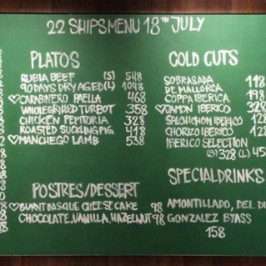 22 SHIPS MENU 18TH JULY
PLATOS
RUBIA BEEF (S) 548
90 DAYS DRY AGED (L) 1048
♡ CARABINERO PAELLA 468
WHOLEGRILLED TURBOT 358
CHICKEN PEPITORIA 328
ROASTED SUCKLING PIG 418
♡ MANCHEGO LAMB 538
POSTRES/DESSERT
♡ BURNT BASQUE CHEESECAKE 98
CHOCOLATE, VANILLA, HAZELNUT 98
COLD CUTS
SOBRASADA 118
DE MALLORCA
COPPA IBERICA 198
♡ JAMON IBERICO 328
SALCHICHON IBERICO 128
CHORIZO IBERICO 128
IBERICO SELECTION
(S) 328 (L) 45
SPECIAL DRINKS
AMONTILLADO, DEL D
GONZALEZ BYASS
158